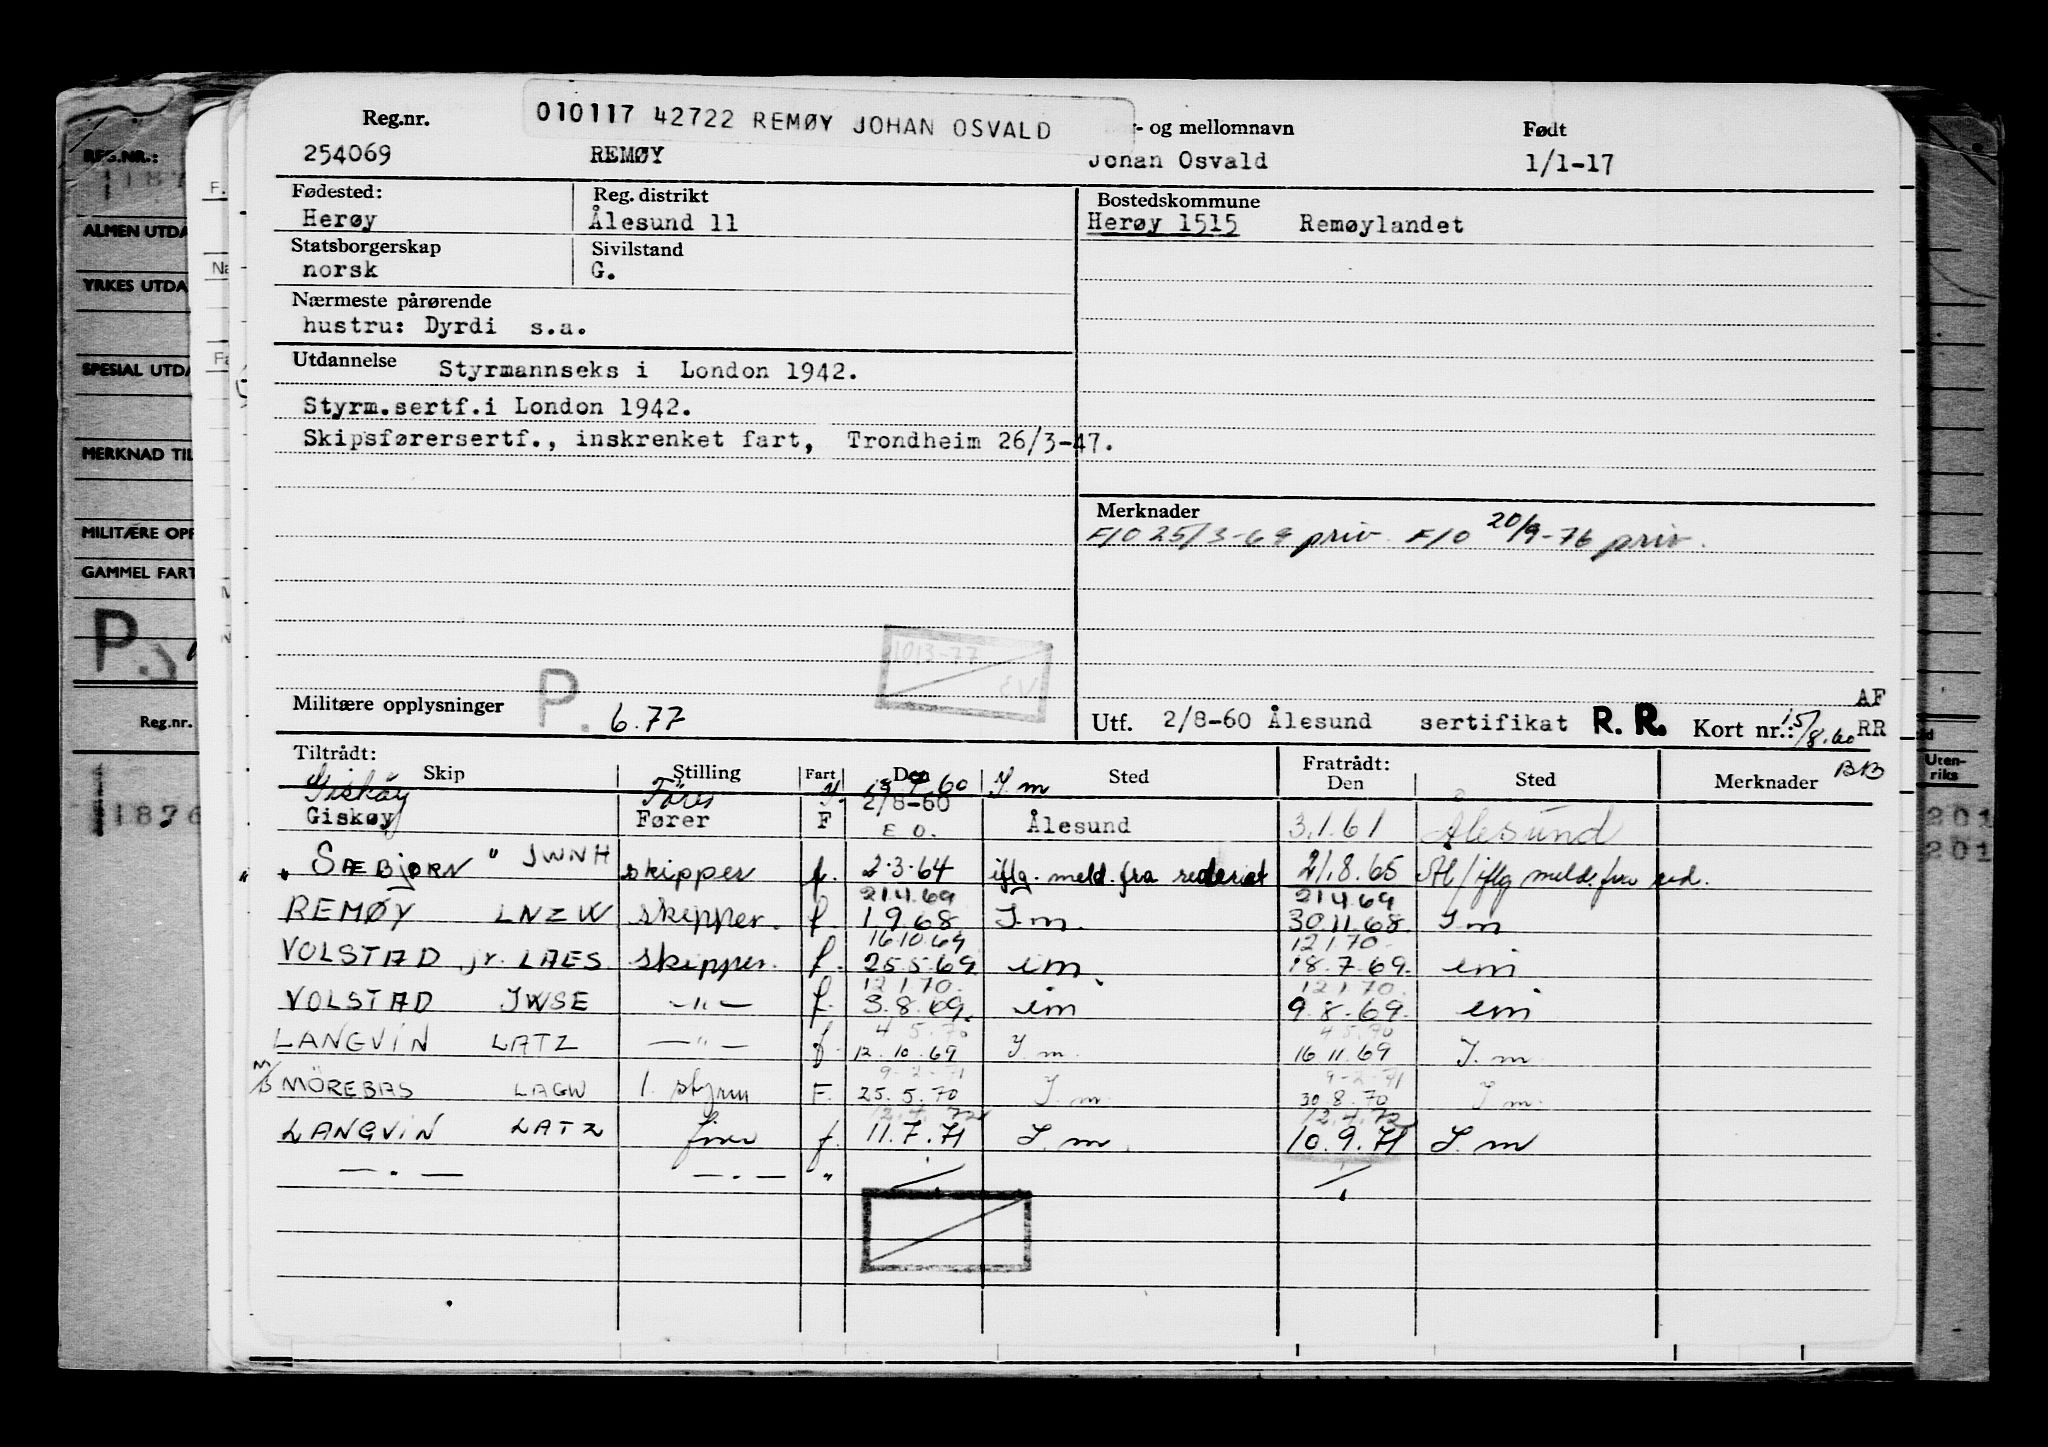 010117 42722 REMØY JOHAN OSVALD
Reg.nr. - og mellomnavn Født
254069 REMØY Johan Osvald 1/1-17
Fødested: Reg. distrikt Bostedskommune
Herøy Ålesund 11 Herøy 1515 Remøylandet
Statsborgerskap Sivilstand
norsk G.
Nærmeste pårørende
hustru: Dyrdi s.a.
Utdannelse Styrmannseks i London 1942.
Styrm.sertf.i London 1942.
Skipsførersertf., inskrenket fart, Trondheim 26/3-47.
Merknader
F/O 25/3-69 priv. F/O 20/9-76 priv.
Militære opplysninger P. 6.77
AF
Utf. 2/8-60 Ålesund sertifikat R. R. Kort nr.: 15/8.60 RR
BB
Tiltrådt: Fratrådt:
Skip Stilling Fart Den Sted Den Sted Merknader
Giskøy Fører 60 I.m
Giskøy Fører F 2/8-60 Ålesund 3.1.61 Ålesund
E O.
" SÆBJØRN " JWNH skipper f. 2.3.64 iflg. meld. fra rederiet 21.8.65 Ål/iflg meld. fra red.
21.4.69 21.4.69
REMØY LNZW skipper. f. 1.9.68 I.m. 30.11.68. I.m
16.10.69 12.1.70.
VOLSTAD jr. LAES. skipper. f. 25.5.69 im. 18.7.69. im
12.1.70. 12.1.70.
VOLSTAD JWSE —"— f. 3.8.69. im 9.8.69. im
4.5.70 4.5.70
LANGVIN LATZ —"— f. 12.10.69 I.m. 16.11.69 I.m.
9-2-71 9-2-71
M/B MÖREBAS LAGW 1. styrm F. 25.5.70 I.m. 30.8.70 I.m.
12.4.72 12.4.72
LANGVIN LATZ fører f. 11.7.71 I.m. 10.9.71 I.m
— " — — " — "
REG.NR.:
ALMEN UTDA
YRKES UTDA
SPESIAL UTDA
MERKNAD TIL
MILITÆRE OPP
GAMMEL FART
P.
Reg.nr.
1876
Uten-
riks
201
201